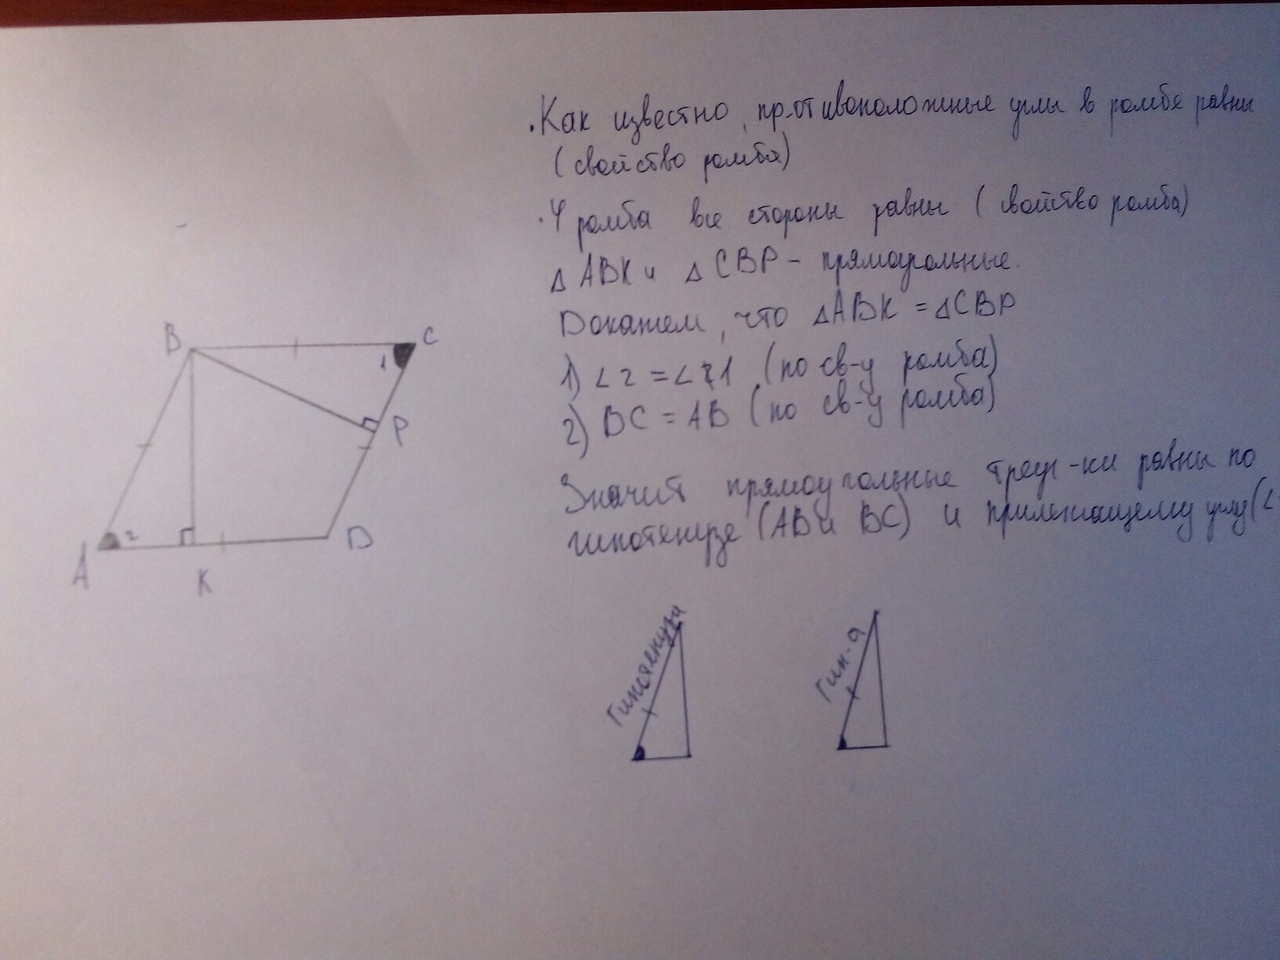 .Как известно, противоположные углы в ромбе равны
(свойство ромба)
.У ромба все стороны равны (свойство ромба)
△ ABK и △ CBP - прямоугольные.
Докажем, что △ABK = △CBP
1) ∠2 = ∠1 (по св-у ромба)
2) BC = AB (по св-у ромба)
Значит прямоугольные треуг-ки равны по
гипотенузе (AB и BC) и прилежащему углу (∠
B
C
1
P
A
2
K
D
Гипотенуза
Гип-а